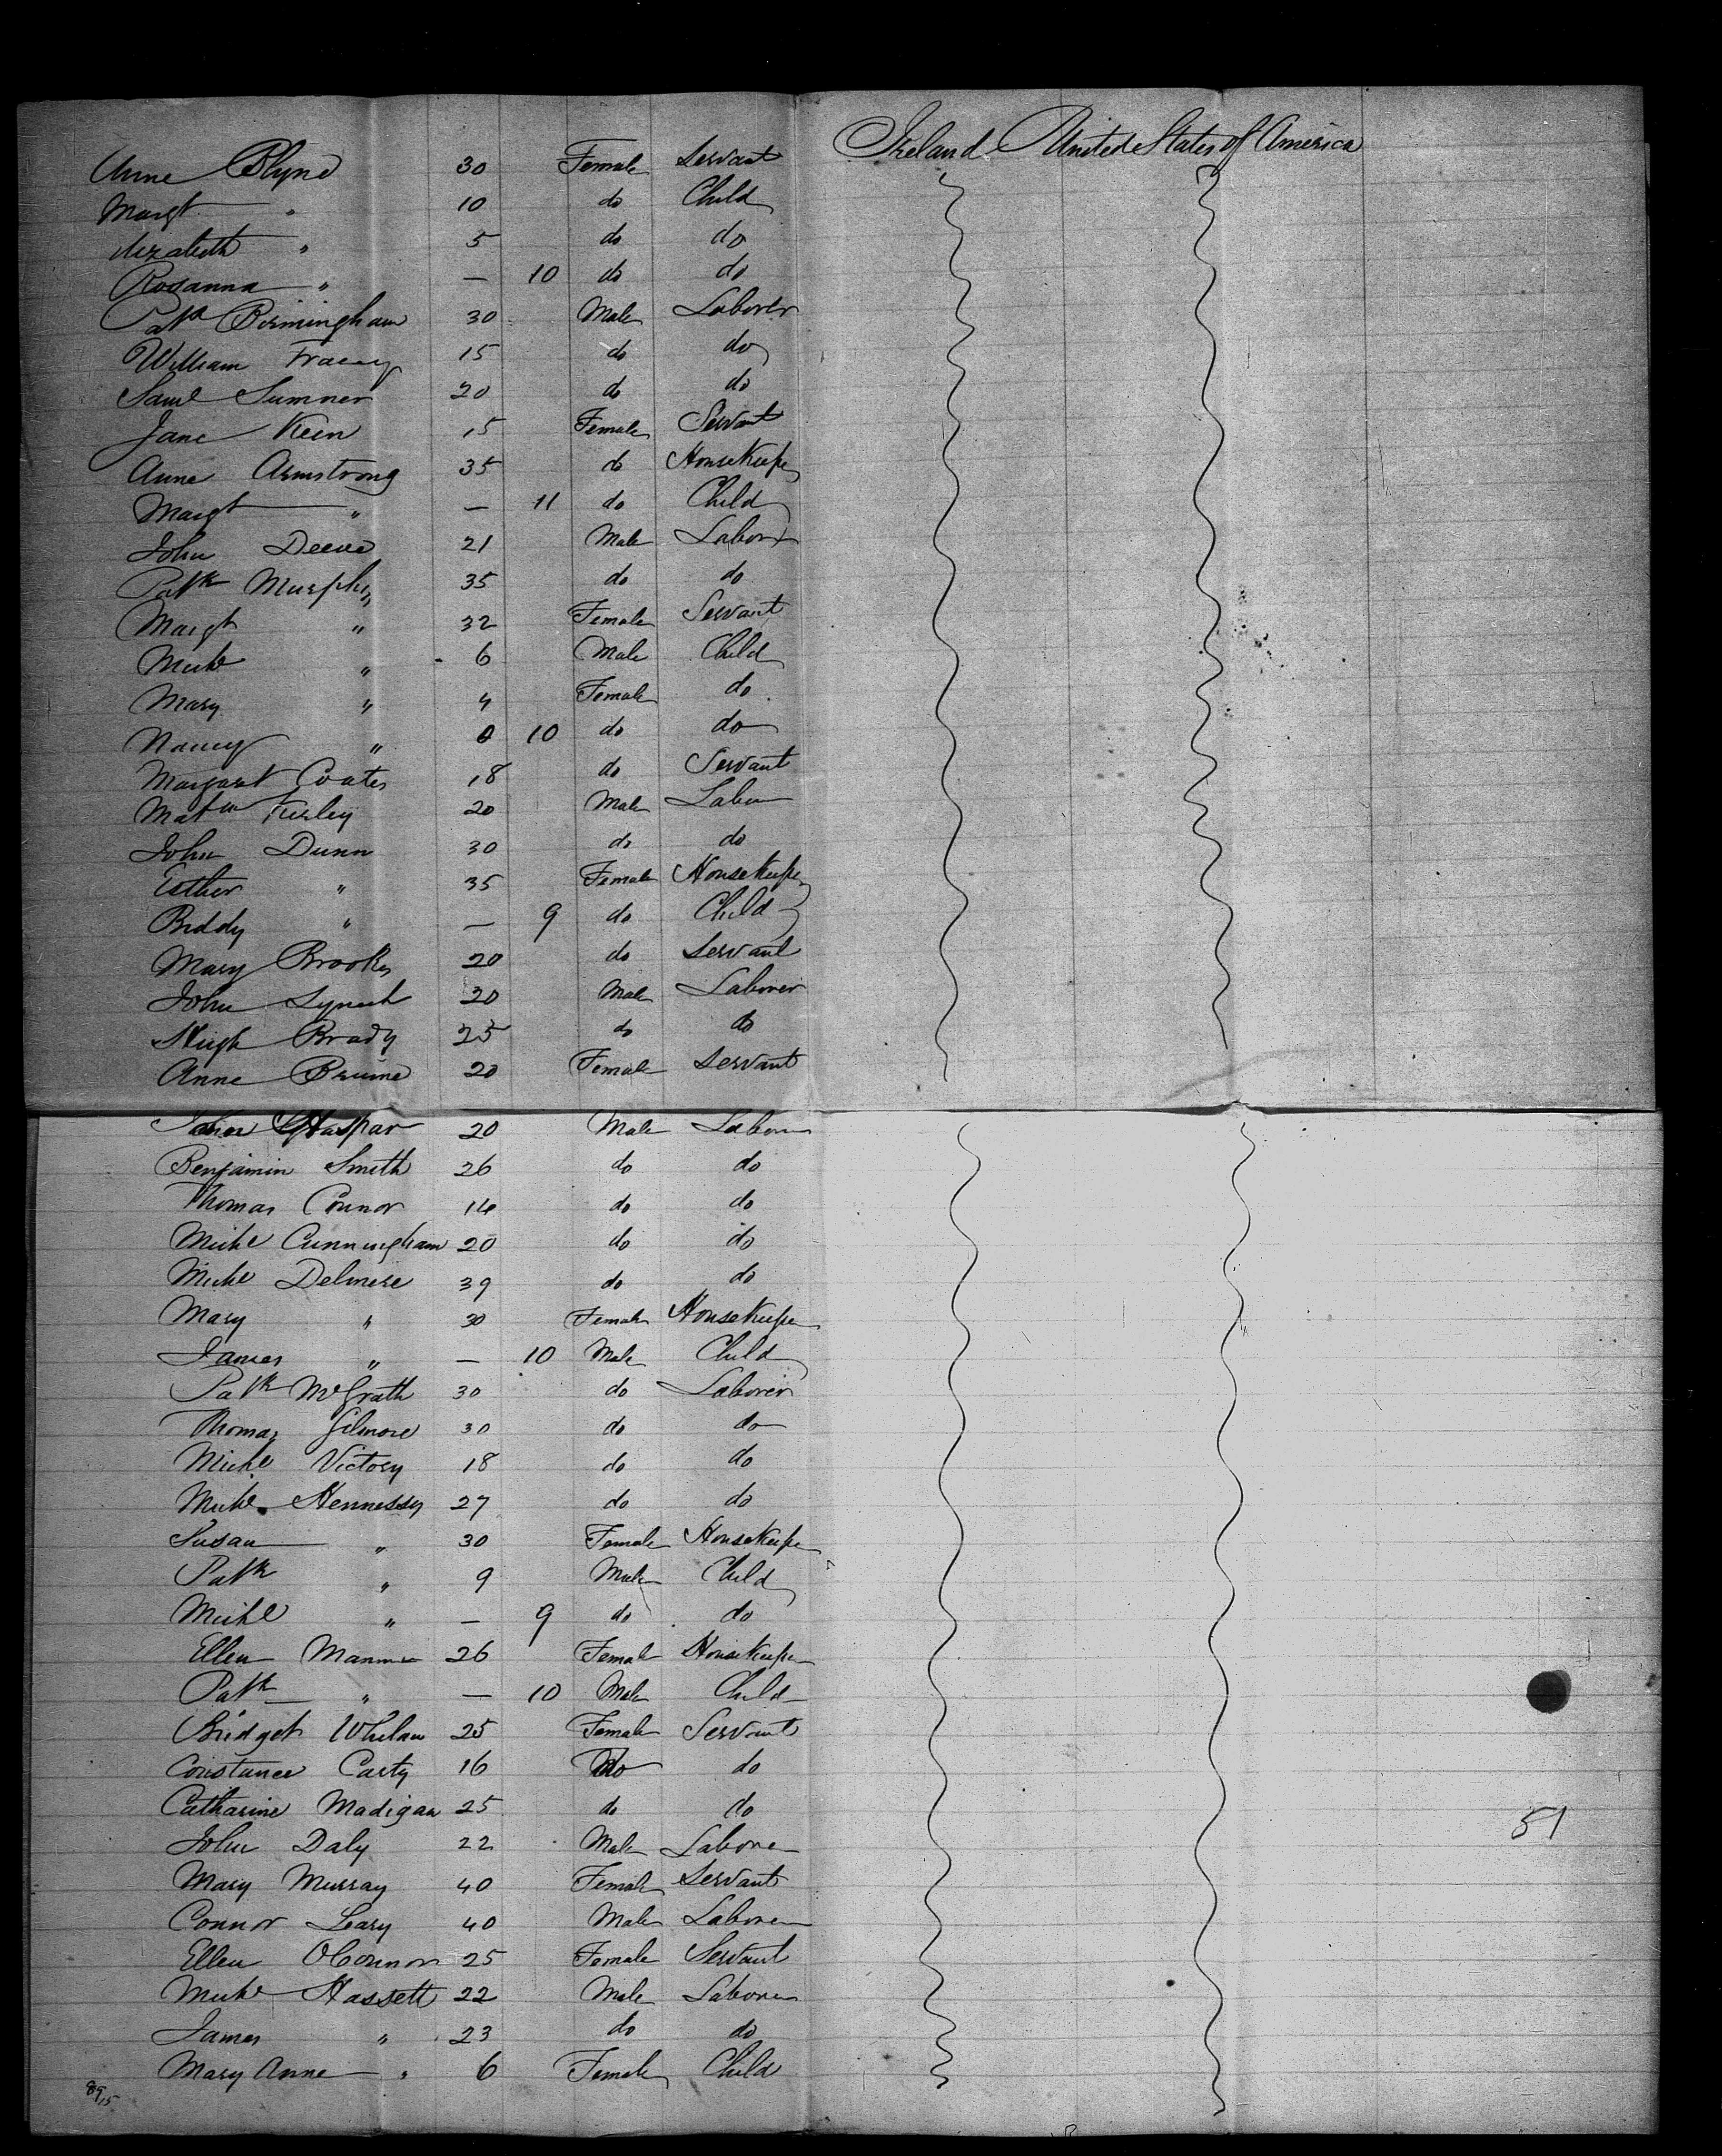 Anne Blyne 30 Female Servant Ireland United States of America
Margt " 10 do Child
Elizabeth " 5 do do
Rosanna " — 10 do do
Patk Birmingham 30 Male Laborer
William Tracey 15 do do
Saml Sumner 20 do do
Jane Keen 15 Female Servant
Anne Armstrong 35 do Housekeeper
Margt " — 11 do Child
John 21 Male Labor
Patk Murphy 35 do do
Margt " 32 Female Servant
Michl " 6 Male Child
Mary " 4 Female do
Nancy " 0 10 do do
Margaret Coates 18 do Servant
Matw Kerley 20 Male Labor
John Dunn 30 do do
Esther " 35 Female Housekeeper
Biddy " — 9 do Child
Mary Brooks 20 do Servant
John Lynch 20 Male Laborer
Hugh Brady 25 do do
Anne 20 Female Servant
20 Male Labore
Benjamin Smith 26 do do
Thomas Connor 14 do do
Michl Cunningham 20 do do
Michl Delmere 39 do do
Mary " 30 Female Housekeeper
James " — 10 Male Child
Patk McGrath 30 do Laborer
Thomas Gilmore 30 do do
Michl Victory 18 do do
Michl Hennessy 27 do do
Susan " 30 Female Housekeeper
Patk " 9 Male Child
Michl " — 9 do do
Ellen 26 Female Housekeeper
Patk " — 10 Male Child
Bridget Whelan 25 Female Servant
Constance Carty 16 do do
Catharine Madigan 25 do do
John Daly 22 Male Labore
51
Mary Murray 40 Female Servant
Connor Leary 40 Male Labore
Ellen OConnor 25 Female Servant
Michl Hassett 22 Male Labore
James " 23 do do
Mary Anne " 6 Female Child